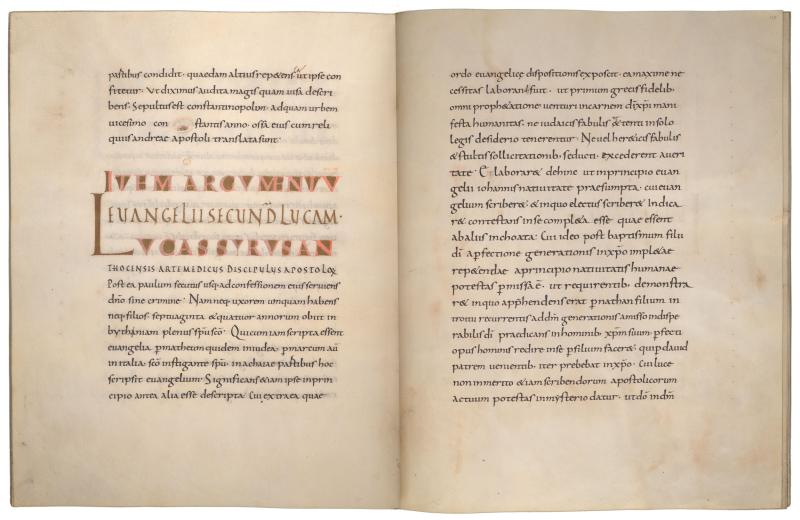 partibus condidit· quaedam altius repetens· ut ipse con
fitetur· Ut diximus audita magis quam uisa descri
bens· Sepultus est constantinopolim· ad quam urbem
uicesimo con stantis anno· ossa eius cum reli
quiis andreae apostoli translata sunt
EUANGELII SECUND LUCAM·
LUCAS SYRUS AN
THOCENSIS ARTE MEDICUS DISCIPULUS APOSTOLOR
Post ea paulum secutus usq; ad confessionem eius seruiens
dno sine crimine· Nam neq; uxorem umquam habens
neq; filios· septuaginta & quattuor annorum obiit in
bythiniam plenus spu sco· Qui cum iam scripta essent
euangelia p matheum quidem in iudea· p marcum au
in italia· sco instigante spu· in achaiae partibus hoc
scripsit euangelium· Significans &iam ipse in prin
cipio antea alia esse descripta· Cui extra ea quae
ordo euangelicę dispositionis exposcit· ea maxime ne
cessitas laboran fuit· ut primum grecis fidelib·
omni proph&atione uenturi in carnem di xpi mani
festa humanitas· ne iudaicis fabulis & tenti in solo
legis desiderio tenerentur· Ne uel her&icis fabulis
& stultis sollicitationib· seducti· excederent a ueri
tate· E laborar& dehinc ut in principio euan
gelii iohannis natiuitate praesumpta· cui euan
gelium scriber& & in quo electus scriber& Indica
r& contestans in se compl&a esse quae essent
ab aliis inchoata· Cui ideo post baptismum filii
di a pfectione generationis in xpo impl&ae
rep&endae a principio natiuitatis humanae
potestas pmissa ē· ut requirentib· demonstra
r& in quo apphendens erat p nathan filium in
troitu recurrentis ad dm generationis amisso indispe
rabilis di praedicans in hominib· xpm suum· pfecti
opus hominis redire in se p filium facer&· qui p dauid
patrem uenientib· iter prebebat in xpo· Cui luce
non inmerito &iam scribendorum apostolicorum
actuum potestas in mysterio datur· ut do in dm